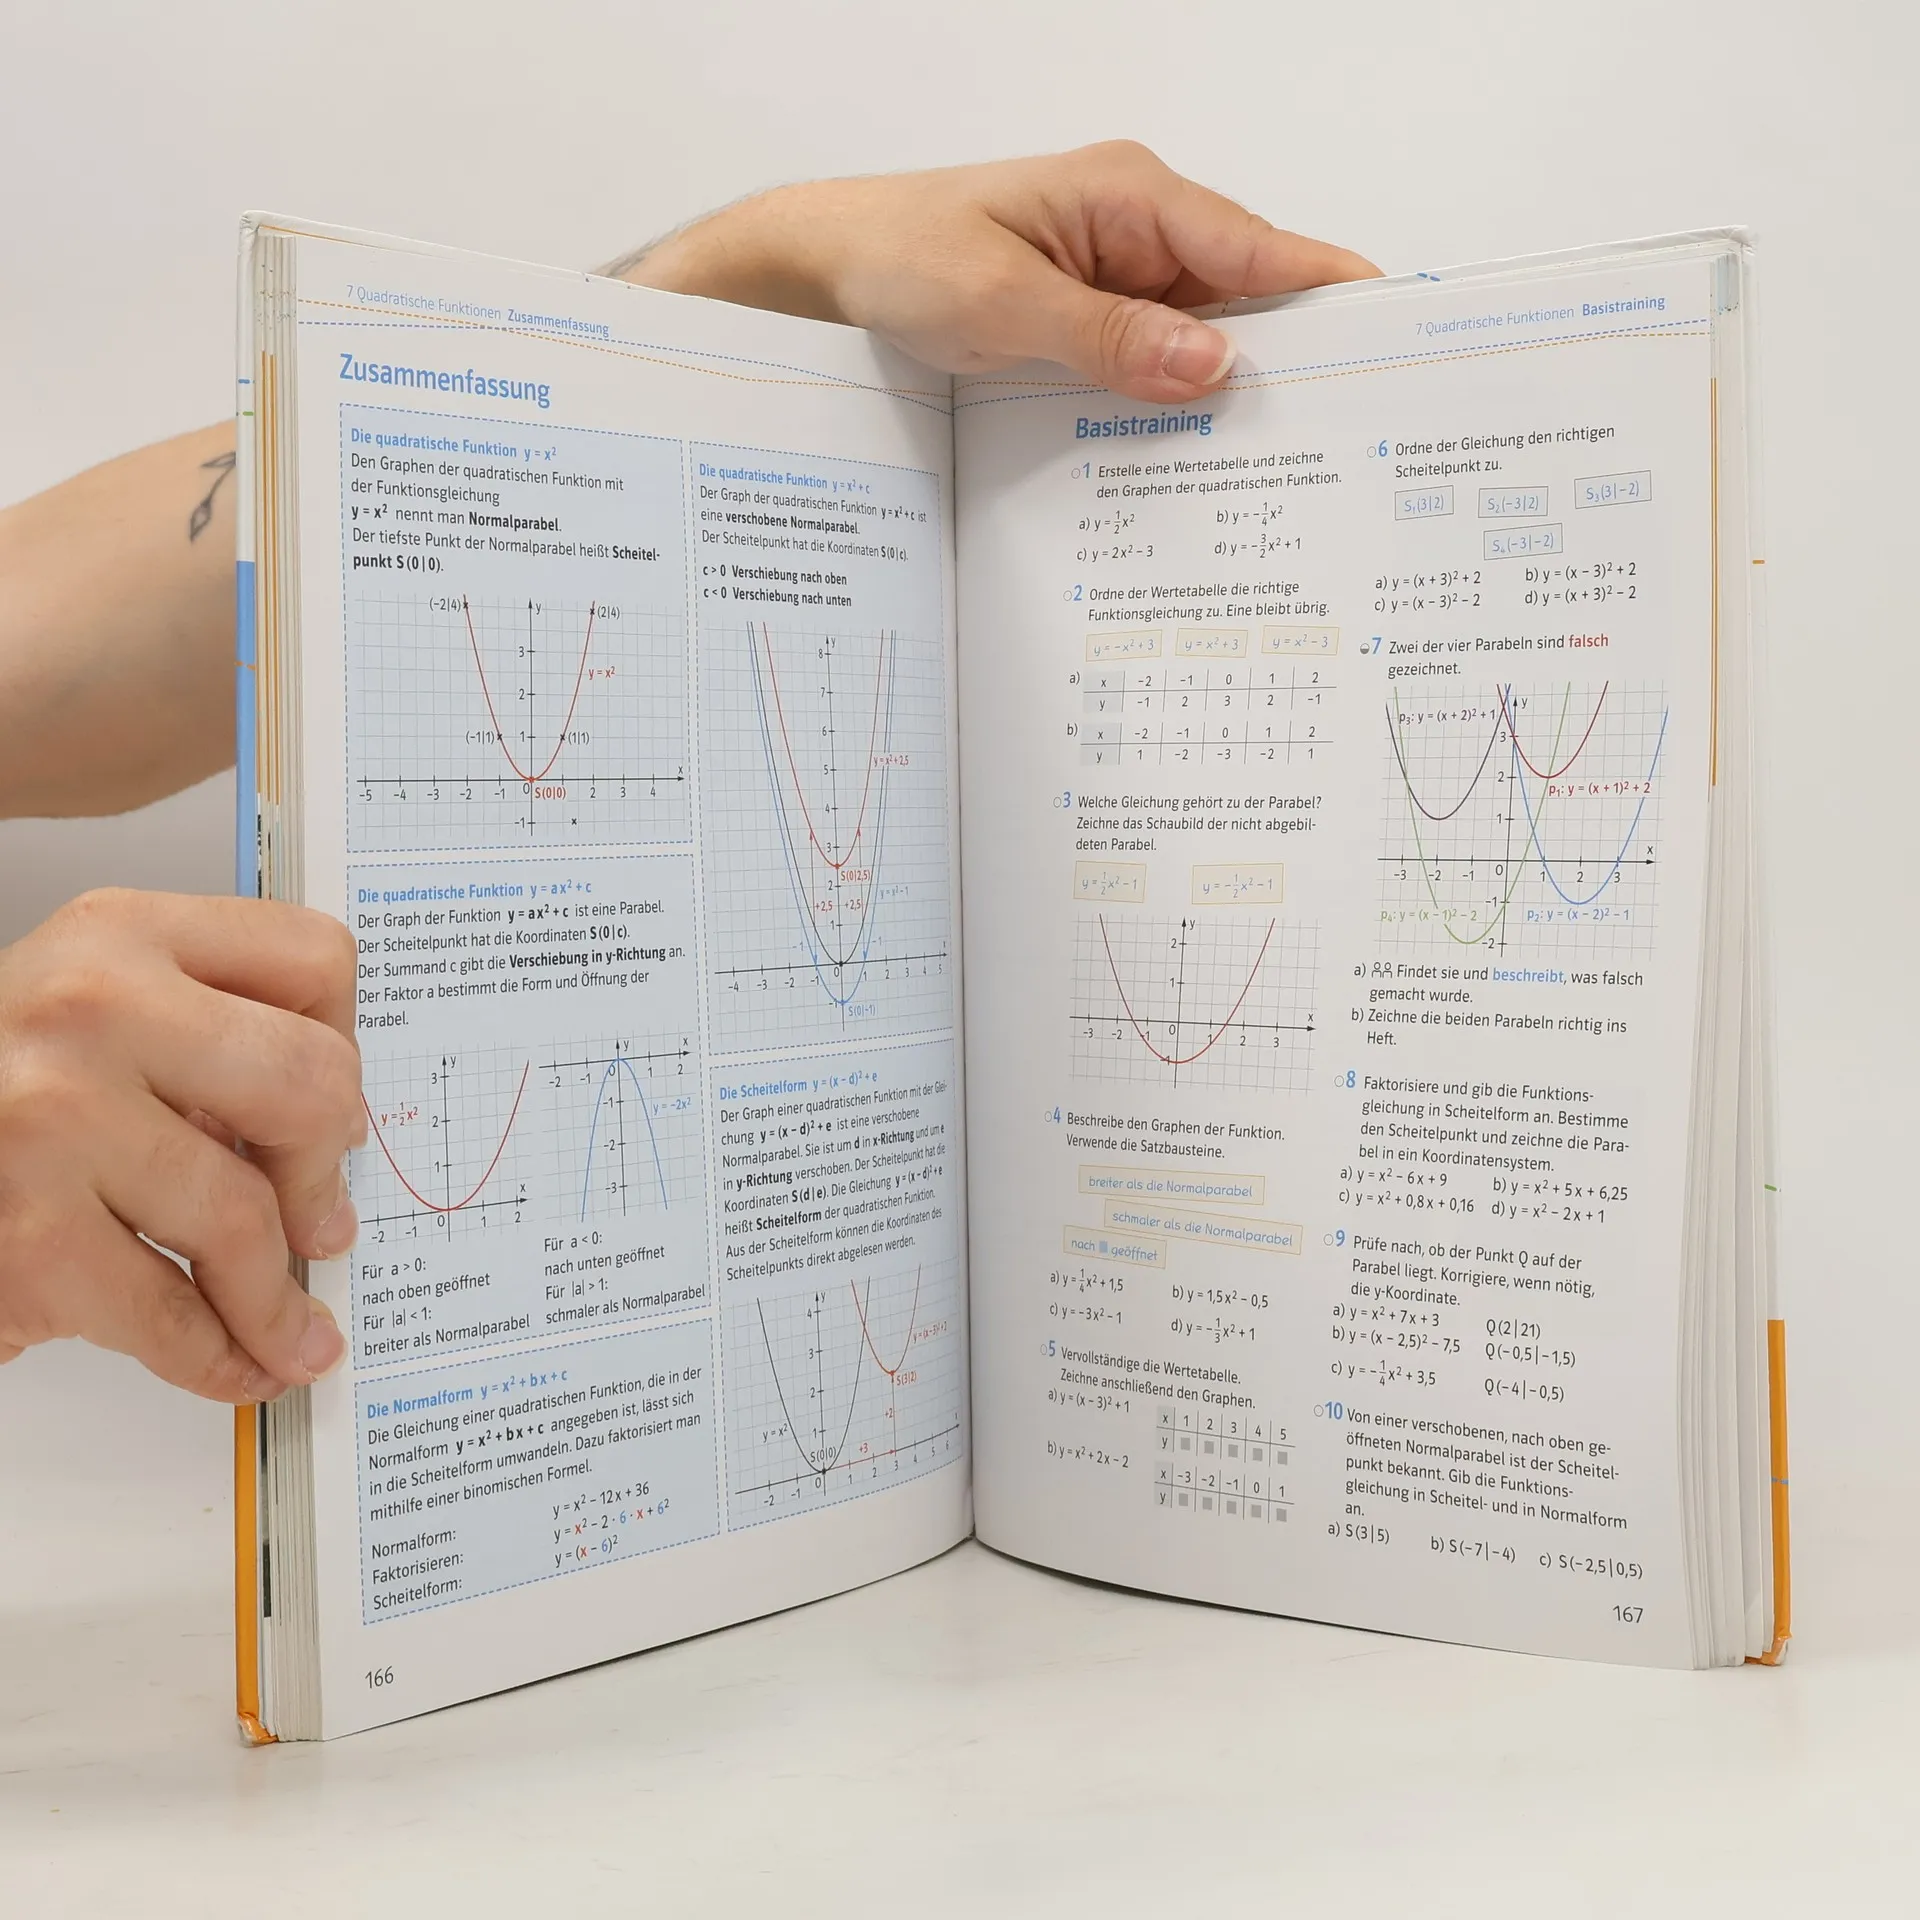 7 Quadratische Funktionen Zusammenfassung
Zusammenfassung
Die quadratische Funktion y = x²
Den Graphen der quadratischen Funktion mit
der Funktionsgleichung
y = x² nennt man Normalparabel.
Der tiefste Punkt der Normalparabel heißt Scheitel-
punkt S(0|0).
(-2|4) y (2|4)
3
y = x²
2
(-1|1) 1 (1|1)
x
-5 -4 -3 -2 -1 0 S(0|0) 2 3 4
-1
Die quadratische Funktion y = ax² + c
Der Graph der Funktion y = ax² + c ist eine Parabel.
Der Scheitelpunkt hat die Koordinaten S(0|c).
Der Summand c gibt die Verschiebung in y-Richtung an.
Der Faktor a bestimmt die Form und Öffnung der
Parabel.
y
3
y = ½x²
2
1
x
-2 -1 0 1 2
y x
-2 -1 0 1 2
-1 y = -2x²
-2
-3
Für a > 0:
nach oben geöffnet
Für |a| < 1:
breiter als Normalparabel
Für a < 0:
nach unten geöffnet
Für |a| > 1:
schmaler als Normalparabel
Die Normalform y = x² + bx + c
Die Gleichung einer quadratischen Funktion, die in der
Normalform y = x² + bx + c angegeben ist, lässt sich
in die Scheitelform umwandeln. Dazu faktorisiert man
mithilfe einer binomischen Formel.
Normalform: y = x² - 12x + 36
Faktorisieren: y = x² - 2 · 6 · x + 6²
Scheitelform: y = (x - 6)²
166
Die quadratische Funktion y = x² + c
Der Graph der quadratischen Funktion y = x² + c ist
eine verschobene Normalparabel.
Der Scheitelpunkt hat die Koordinaten S(0|c).
c > 0 Verschiebung nach oben
c < 0 Verschiebung nach unten
y
8
7
6
y = x² + 2,5
5
4
3
S(0|2,5)
2 y = x² - 1
+2,5 +2,5
1
-1 -1
-4 -3 -2 -1 0 1 2 3 4 5
-1 S(0|-1)
Die Scheitelform y = (x - d)² + e
Der Graph einer quadratischen Funktion mit der Glei-
chung y = (x - d)² + e ist eine verschobene
Normalparabel. Sie ist um d in x-Richtung und um e
in y-Richtung verschoben. Der Scheitelpunkt hat die
Koordinaten S(d|e). Die Gleichung y = (x - d)² + e
heißt Scheitelform der quadratischen Funktion.
Aus der Scheitelform können die Koordinaten des
Scheitelpunkts direkt abgelesen werden.
y
4
y = (x - 3)² + 2
3
S(3|2)
2
+2
y = x² 1
S(0|0) +3
-2 -1 0 1 2 3 4 5 6
7 Quadratische Funktionen Basistraining
Basistraining
1 Erstelle eine Wertetabelle und zeichne
den Graphen der quadratischen Funktion.
a) y = ½x² b) y = -¼x²
c) y = 2x² - 3 d) y = -3/2x² + 1
2 Ordne der Wertetabelle die richtige
Funktionsgleichung zu. Eine bleibt übrig.
y = -x² + 3 y = x² + 3 y = x² - 3
a) x -2 -1 0 1 2
y -1 2 3 2 -1
b) x -2 -1 0 1 2
y 1 -2 -3 -2 1
3 Welche Gleichung gehört zu der Parabel?
Zeichne das Schaubild der nicht abgebil-
deten Parabel.
y = ½x² - 1 y = -½x² - 1
y
2
1
x
-3 -2 -1 0 1 2 3
-1
4 Beschreibe den Graphen der Funktion.
Verwende die Satzbausteine.
breiter als die Normalparabel
schmaler als die Normalparabel
nach ■ geöffnet
a) y = ¼x² + 1,5 b) y = 1,5x² - 0,5
c) y = -3x² - 1 d) y = -⅓x² + 1
5 Vervollständige die Wertetabelle.
Zeichne anschließend den Graphen.
a) y = (x - 3)² + 1
x 1 2 3 4 5
y ■ ■ ■ ■ ■
b) y = x² + 2x - 2
x -3 -2 -1 0 1
y ■ ■ ■ ■ ■
6 Ordne der Gleichung den richtigen
Scheitelpunkt zu.
S₁(3|2) S₂(-3|2) S₃(3|-2)
S₄(-3|-2)
a) y = (x + 3)² + 2 b) y = (x - 3)² + 2
c) y = (x - 3)² - 2 d) y = (x + 3)² - 2
7 Zwei der vier Parabeln sind falsch
gezeichnet.
p₃: y = (x + 2)² + 1 y
3
2
p₁: y = (x + 1)² + 2
1
x
-3 -2 -1 0 1 2 3
-1
p₄: y = (x - 1)² - 2 p₂: y = (x - 2)² - 1
-2
a) Findet sie und beschreibt, was falsch
gemacht wurde.
b) Zeichne die beiden Parabeln richtig ins
Heft.
8 Faktorisiere und gib die Funktions-
gleichung in Scheitelform an. Bestimme
den Scheitelpunkt und zeichne die Para-
bel in ein Koordinatensystem.
a) y = x² - 6x + 9 b) y = x² + 5x + 6,25
c) y = x² + 0,8x + 0,16 d) y = x² - 2x + 1
9 Prüfe nach, ob der Punkt Q auf der
Parabel liegt. Korrigiere, wenn nötig,
die y-Koordinate.
a) y = x² + 7x + 3 Q(2|21)
b) y = (x - 2,5)² - 7,5 Q(-0,5|-1,5)
c) y = -¼x² + 3,5 Q(-4|-0,5)
10 Von einer verschobenen, nach oben ge-
öffneten Normalparabel ist der Scheitel-
punkt bekannt. Gib die Funktions-
gleichung in Scheitel- und in Normalform
an.
a) S(3|5) b) S(-7|-4) c) S(-2,5|0,5)
167